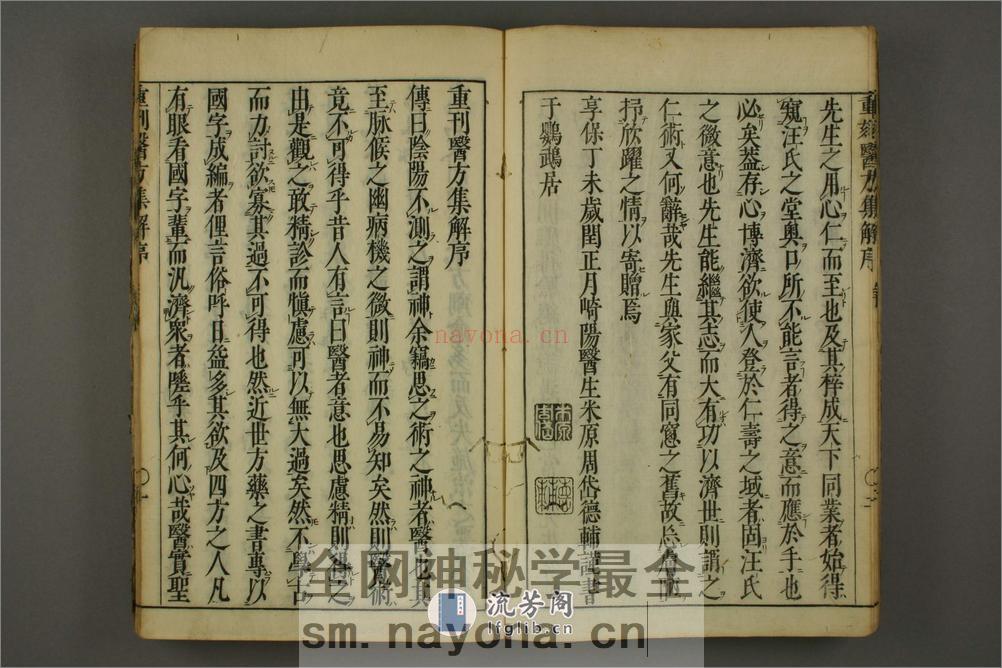 重刻醫方集解序
先生之用心仁而至也及其梓成天下同業者始得
窺汪氏之堂奧口所不能言者得之意而應於手也
必矣蓋存心博濟欲使人登於仁壽之域者固汪氏
之微意也先生能繼其志而大有功以濟世則謂之
仁術又何辭哉先生與家父有同窓之舊故忘
抒欣躍之情以寄贈焉
享保丁未歲閏正月崎陽醫生米原周岱德輔謹書
于鸚鵡居
重刊醫方集解序
傳曰陰陽不測之謂神余竊思之術之神者醫也其
至脉候之幽病機之微則神而不易知矣然則醫術
竟不可得乎昔人有言曰醫者意也思慮精則得之
由是觀之敢精診而愼慮可以無大過矣然不學古
而力討欲寡其過不可得也然近世方藥之書專以
國字成編者俚言俗呼日益多其欲及四方之人凡
有眼看國字輩而汎濟衆者嗟乎其何心哉醫實聖
重刊醫方集解序
nayona.cn
全网神秘学最全
sm.nayona.cn
流芳阁
lfglib.cn